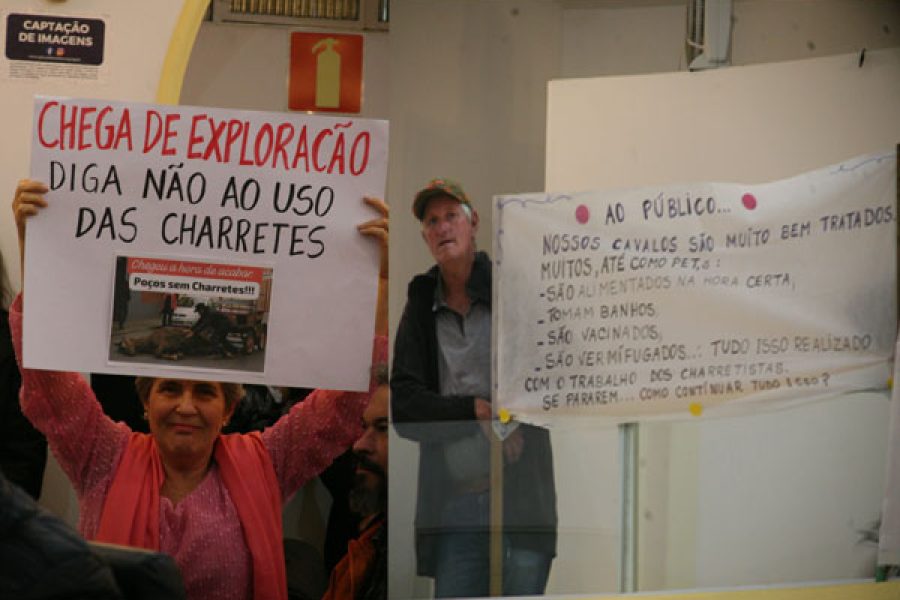 CAPTAÇÃO
DE IMAGENS
CHEGA DE EXPLORACÃO
DIGA NÃO AO USO
DAS CHARRETES
Chegou a hora de acabar
Poços sem Charretes!!!
AO PÚBLICO...
NOSSOS CAVALOS SÃO MUITO BEM TRATADOS.
MUITOS, ATÉ COMO PET,s:
-SÃO ALIMENTADOS NA HORA CERTA,
-TOMAM BANHOS,
-SÃO VACINADOS,
-SÃO VERMIFUGADOS... TUDO ISSO REALIZADO
COM O TRABALHO DOS CHARRETISTAS.
SE PARAREM... COMO CONTINUAR TUDO ISSO?